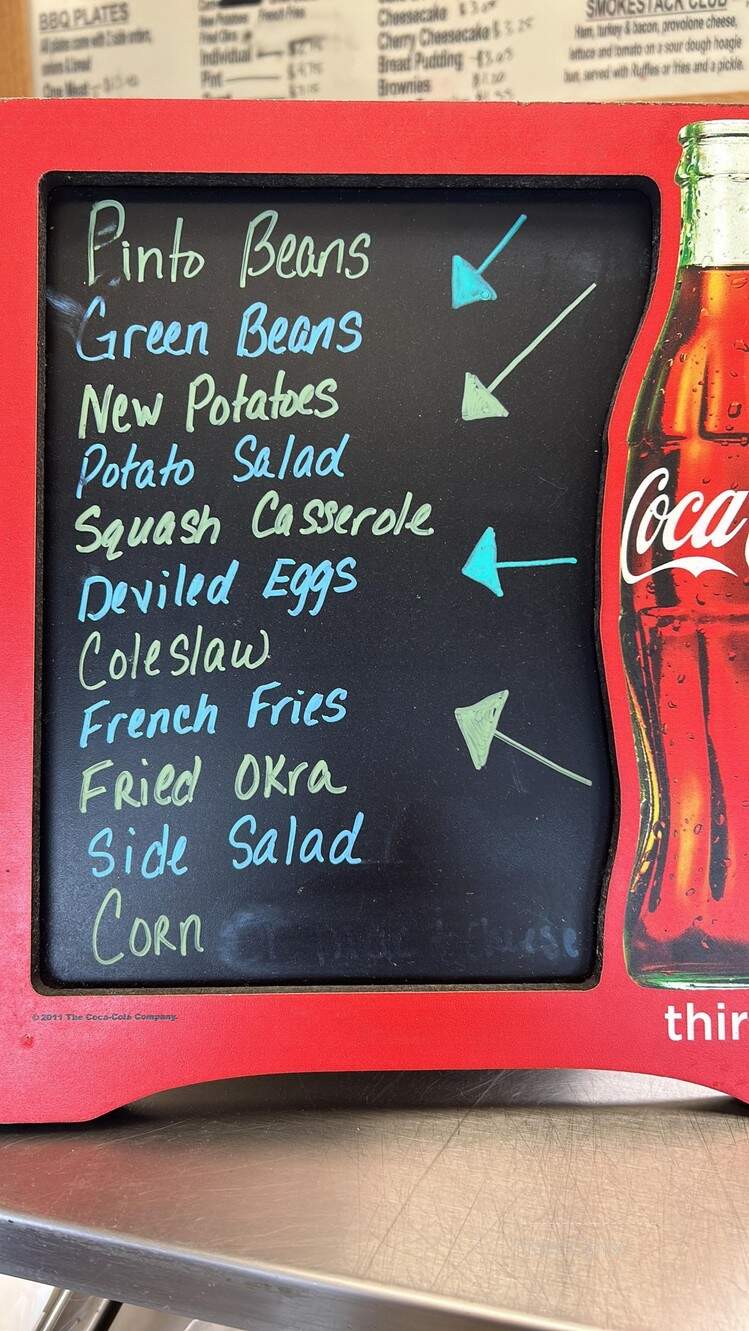 BBQ PLATES
All plates come with 2 side orders,
onions & bread
One Meat
French Fries
Individual
Pint
Cheesecake
Cherry Cheesecake $3.25
Bread Pudding
Brownies
SMOKESTACK CLUB
Ham, turkey & bacon, provolone cheese,
lettuce and tomato on a sour dough hoagie
bun, served with Ruffles or fries and a pickle.
Pinto Beans
Green Beans
New Potatoes
Potato Salad
Squash Casserole
Deviled Eggs
Coleslaw
French Fries
Fried Okra
Side Salad
Corn
cheese
Coca
© 2011 The Coca-Cola Company.
thir